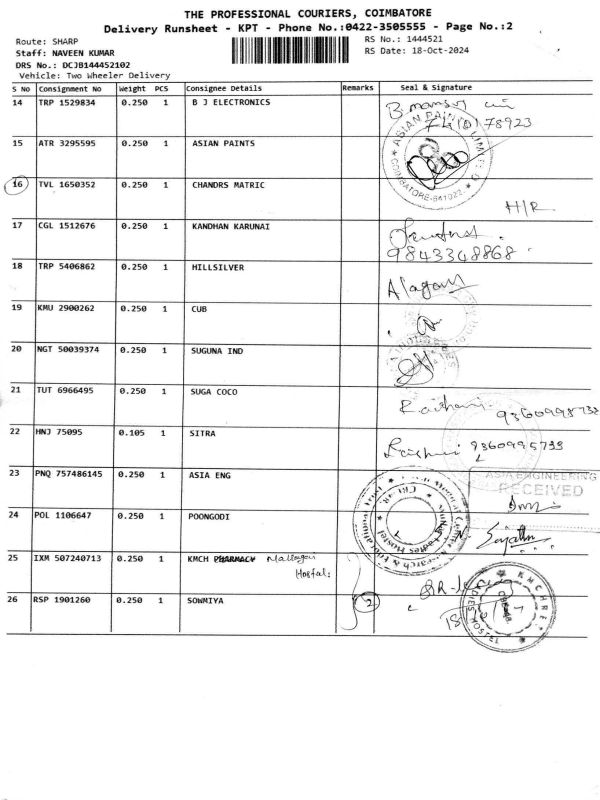 THE PROFESSIONAL COURIERS, COIMBATORE
Delivery Runsheet - KPT - Phone No.:0422-3505555 - Page No.:2
Route: SHARP
RS No.: 1444521
Staff: NAVEEN KUMAR
RS Date: 18-Oct-2024
DRS No.: DCJB144452102
Vehicle: Two Wheeler Delivery
S No Consignment No Weight PCS Consignee Details Remarks Seal & Signature
14 TRP 1529834 0.250 1 B J ELECTRONICS
78923
15 ATR 3295595 0.250 1 ASIAN PAINTS
ASIAN PAINTS LIMITED
COIMBATORE-641022
16 TVL 1650352 0.250 1 CHANDRS MATRIC
H/R
17 CGL 1512676 0.250 1 KANDHAN KARUNAI
9843348868
18 TRP 5406862 0.250 1 HILLSILVER
19 KMU 2900262 0.250 1 CUB
20 NGT 50039374 0.250 1 SUGUNA IND
21 TUT 6966495 0.250 1 SUGA COCO
22 HNJ 75095 0.105 1 SITRA
23 PNQ 757486145 0.250 1 ASIA ENG
ASIA ENGINEERING
RECEIVED
24 POL 1106647 0.250 1 POONGODI
25 IXM 507240713 0.250 1 KMCH PHARMACY
Hostal:
26 RSP 1901260 0.250 1 SOWMIYA 2
KMCHRET
LADIES HOSTEL